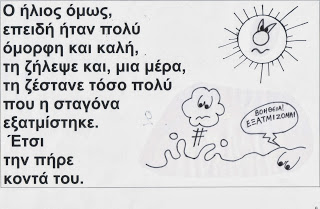 Ο ήλιος όμως,
επειδή ήταν πολύ
όμορφη και καλή,
τη ζήλεψε και, μια μέρα,
τη ζέστανε τόσο πολύ
που η σταγόνα
εξατμίστηκε.
Έτσι
την πήρε
κοντά του.
ΒΟΗΘΕΙΑ!
ΕΞΑΤΜΙΖΟΜΑΙ!